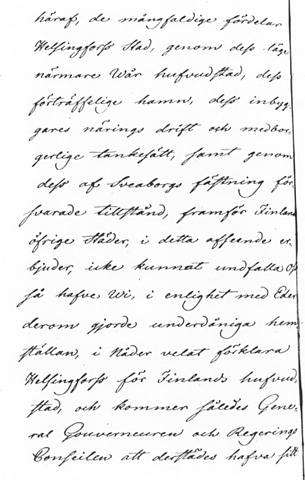 häraf, de mångfaldige fördelar
Helsingforss Stad, genom dess läge
närmare Wår hufvudstad, dess
förträffelige hamn, dess inbyg-
gares närings drift och medbor-
gerlige tankesätt, samt genom
dess af Sveaborgs fästning för-
svarade tillstånd, framför Finlands
öfrige Städer, i detta afseende er-
bjuder, icke kunnat undfalla Oss
så hafve Wi, i enlighet med Eder
derom gjorde underdåniga hem-
ställan, i Nåder velat förklara
Helsingforss för Finlands hufvud
stad, och kommer således Gene-
ral Gouverneuren och Regerings
Conseilen att derstädes hafva sitt